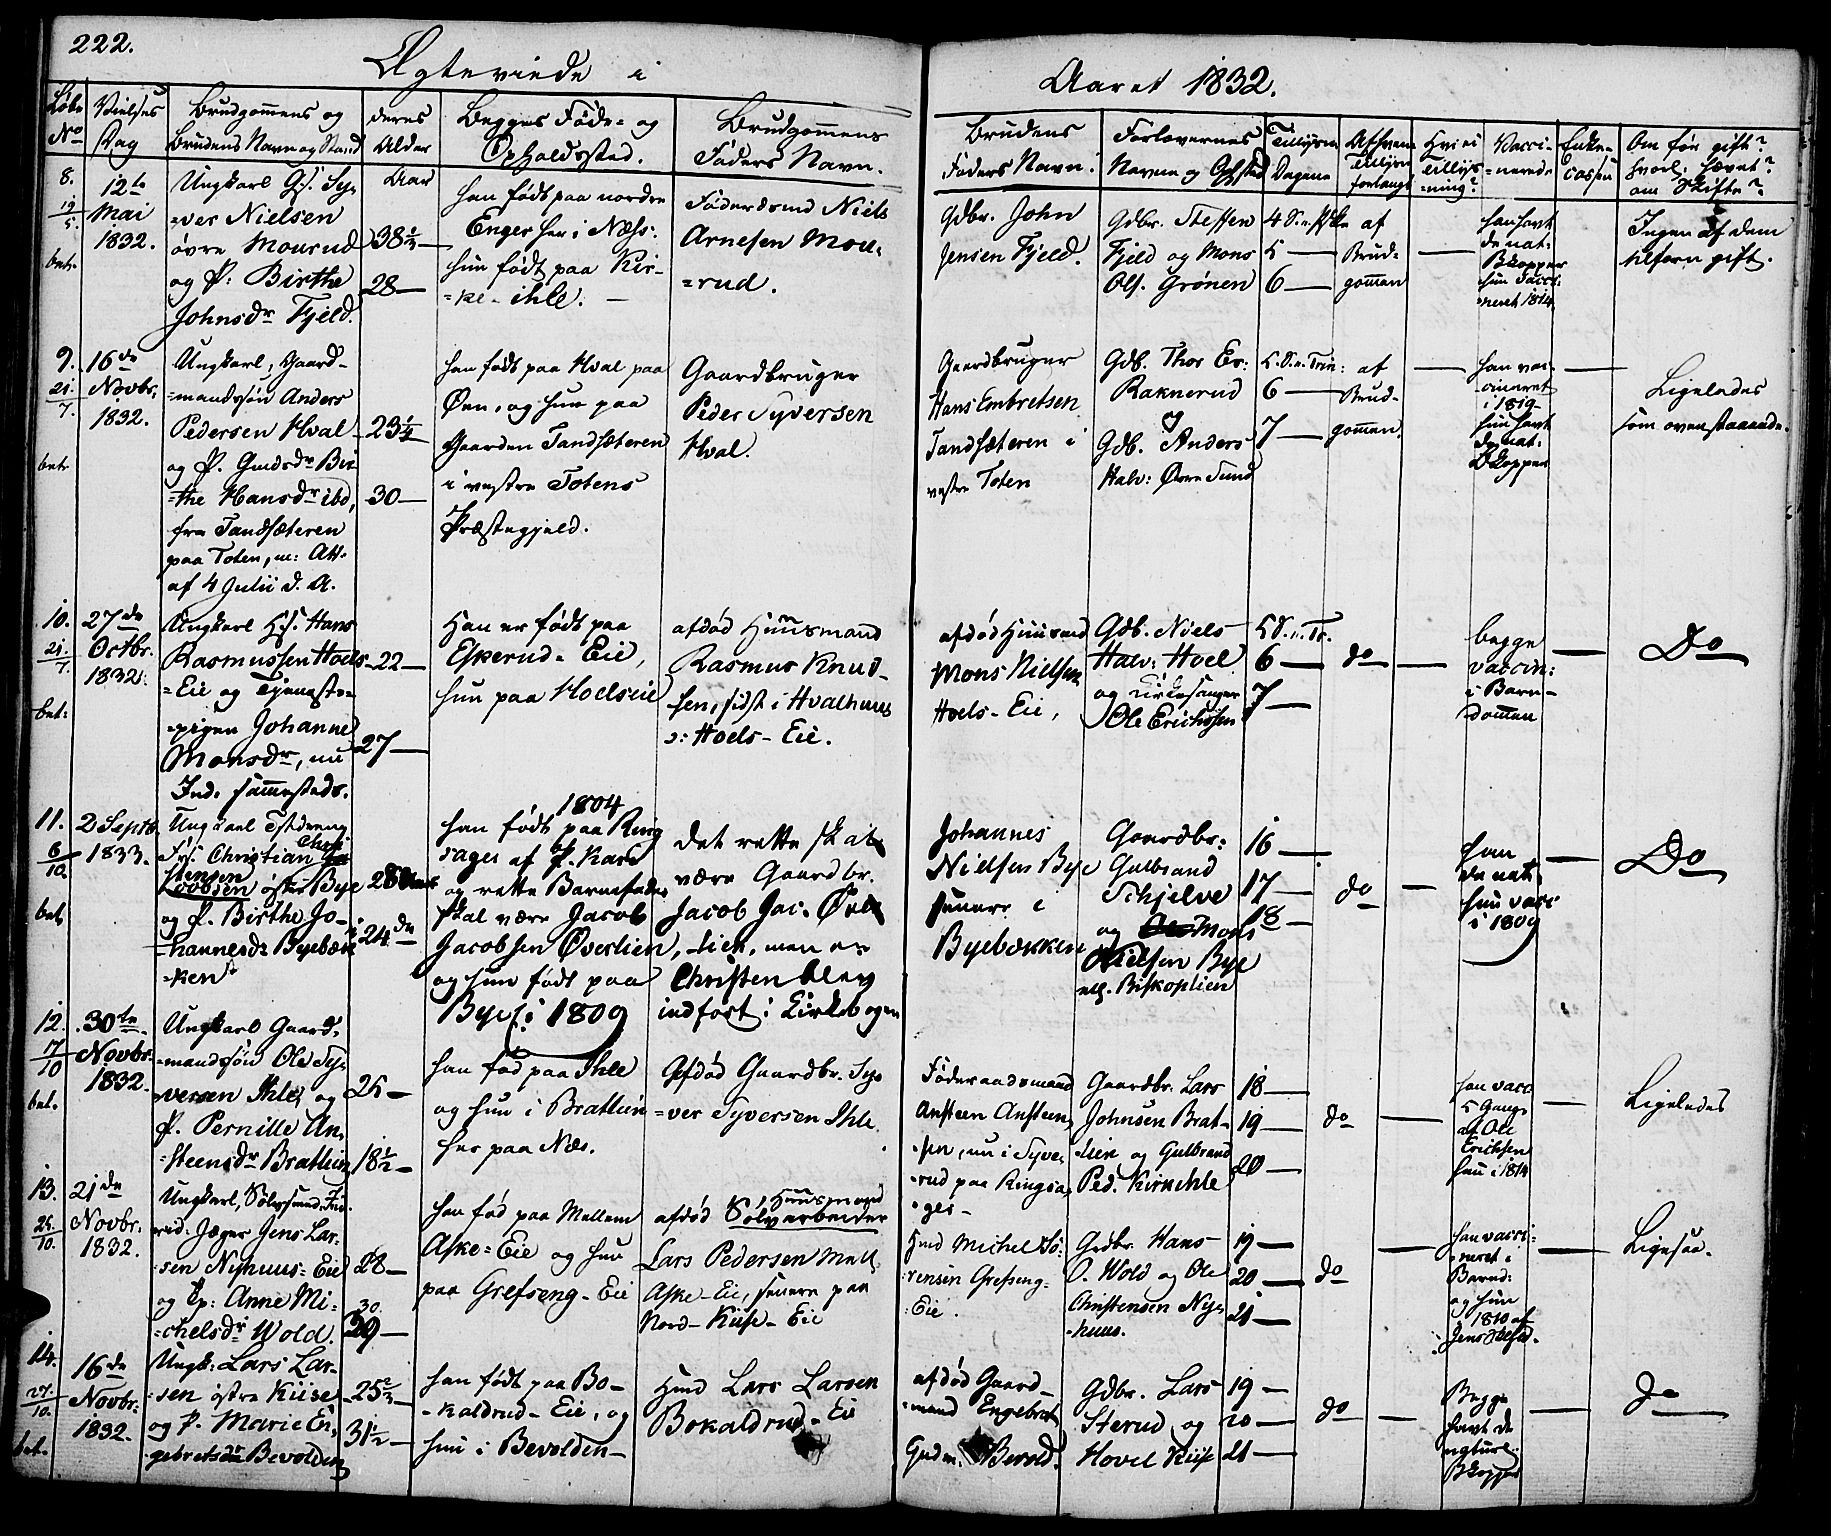 222.
Ægteviede i
Aaret 1832.
Løbe
No
Vielses
Dag
Brudgommens og
Brudens Navn og Stand
deres
Alder
Begges Føde- og
Opholdssted.
Brudgommens
Faders Navn.
Brudens
Faders Navn.
Forlovernes
Navne og Opholdsted
Tillysn.
Dagene
Af hvem
Tillysn.
forlangt
Hvi ei
Tillys
=ning?
Vacci-
=nerede
Enke-
cassen
Om før gift?
hvorl. hævet?
om Skifte?
8.
19/5
bet.
12te
Mai
1832.
Ungkarl Gs. Sy-
=ver Nielsen
øvre Mourud
og P: Birthe
Johnsdr Fjeld.
Aar
38½
28
han født paa nordre
Enger her i Næss:
hun født paa Kir-
=ke-ihle. –
Føderdsmd Niels
Arnesen Mou-
=rud.
Gdbr. John
Jensen Fjeld.
Gdbr. Steffen
Fjeld og Mons
Ols. Grønen
4 S. e. Pske
5
6
af
Brud-
gommen
han havt
de nat:
Bkopper
hun Vacci-
neret 1814
Ingen af dem
tilforn gift.
9.
21/7
bet.
16de
Novbr.
1832.
Ungkarl, Gaard-
=mandssøn Anders
Pedersen Hval
og P. Gmdsdr Bir
=the Hansdr ibd,
fra Sandsæteren
paa Toten, m: Att.
af 4 Julii d. A.
23¼
30
han født paa Hval paa
Øen, og hun paa
Gaarden Sandsæteren
i vestre Totens
Præstegjeld.
Gaardbruger
Peder Syversen
Hval.
Gaardbruger
Hans Embretsen
Sandsæteren i
vestre Toten
Gdb. Thor Er:
Raknerud
Gdb. Anders
Halv: Øvre Sund
5. S. e. Trin:
6
7
af
Brud-
gommen.
han vac-
cineret
i 1819
hun havt
de nat:
Bkopper
Ligeledes
som ovenstaaende.
10.
21/7
bet:
27de
Octbr.
1832.
Ungkarl Hs. Hans
Rasmussen Hoels
=Eie og Tjeneste-
=pigen Johanne
Monsdr, nu
Ind. sammesteds.
22
27
Han er født paa
Eskerud-Eie,
hun paa Hoelseie
afdød Huusmand
Rasmus Knud-
sen, sidst i Hvalhuus
o: Hoels-Eie.
afdød Huusmd
Mons Nielsen
Hoels-Eie,
Gdb. Niels
Halv: Hoel
og Kirkesanger
Ole Erichssen
5 S. e. Tr.
6
7
do
begge
vaccin:
i Barn-
dommen
Do
11.
6/10.
bet
2 Septb.
1833.
Christian Chri
stensen
østre Bye
og P. Birthe Jo-
=hannesdr Byebæk
=ken
28
24de
1804
han født paa Ring
sager af P. Kari
og rette Barnefader
skal være Jacob
Jacobsen Øverlien,
og hun født paa
Bye i 1809
det rette skal
være Gaardbr.
Jacob Jac. Øver
lien, men er
Christen blev
indført i Kirkebogen
Johannes
Nielsen Bye
senere i
Byebækken
Gaardbr:
Gulbrand
Schjelve
og Mons
Nielsen Bye
nu. Biskoplien
16
17
18
do
han
de nat:
hun vacc
i 1809
Do
12.
7/10
bet.
30te
Novbr:
1832.
Ungkarl Gaard-
=mandssøn Ole Sy-
=versen Ihle, og
P. Pernille An-
=steensdr Bratlien
25
18½
han fød paa Ihle
og hun i Bratlien
her paa Næs.
Afdød Gaardbr. Sy-
=ver Syversen Ihle.
Føderaadsmand
Ansteen Ansteen-
sen, nu i Syve-
rud paa Ringsa
=ger
Gaardbr. Lars
Johnsen Brat-
=lien og Gulbrand
Ped. Kirkeihle
18
19
20
do
han vacc
5 Gange
af Ole
Erichsen
hun i 1814
Ligeledes
13.
21de
Novbr:
1832.
Jæger Jens Lar-
sen Nyhuus-Eie
og Ep: Anne Mi-
=chelsdr Wold.
28
30.
29
han fød paa Mellem
Aske-Eie og hun
paa Grefseng-Eie
afdød Huusmand
Sølvarbeider
Lars Pedersen Mell.
Aske-Eie, senere paa
Nord-Kiise-Eie
Hmd Michel Sø-
rensen Grefseng-
=Eie.
Grdbr. Hans
O. Wold og Ole
Christensen Ny-
=huus.
19
20
21
do
han vacci-
neret i
Barnd:
og hun
1810 af
Ligesaa.
14.
27/10.
bet.
16de
Novbr:
1832.
Ungk: Lars Lar-
=sen østre Kiise
og P. Marie En-
gebretsdr Bevolden
25⅔
31½
han født paa Bo-
=kaldrud-Eie, og
hun i Bevolden
Hmd Lars Larsen
Bokaldrud-Eie
afdød Gaard-
=mand Engebret
Gudm. Bevold.
Gdbr. Lars
Sterud og
Hovel Kiise
19
20
21
do
Begge
havt de
naturl:
Bkopper
do